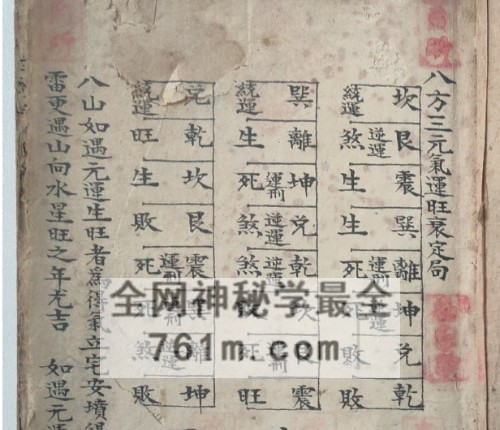 八方三元氣運旺衰定局
坎艮震巽離坤兌乾
逆運
統運煞生生死敗敗
巽離坤兌乾坎震
運剋逆運逆運
統運生死煞煞旺
兌乾坎艮震離坤
運剋
統運旺生敗死死煞敗
八山如遇元運生旺者為得氣立宅安墳得
雷更遇山向水星旺之年尤吉 如遇元運
全网神秘学最全
761m.com